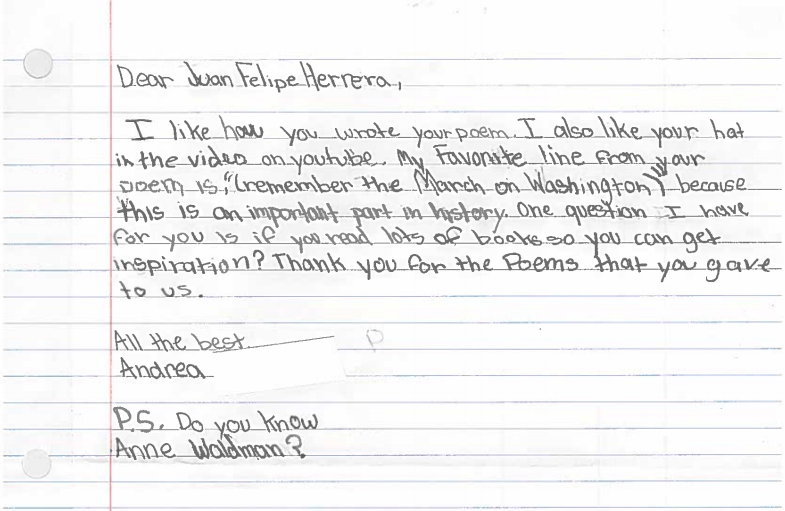 Dear Juan Felipe Herrera,
I like how you wrote your poem. I also like your hat
in the video on youtube. My Favorite line from your
poem is, "(remember the March on Washington)" because
this is an important part in history. One question I have
for you is if you read lots of books so you can get
inspiration? Thank you for the Poems that you gave
to us.
All the best
P
Andrea
P.S. Do you know
Anne Waldman?